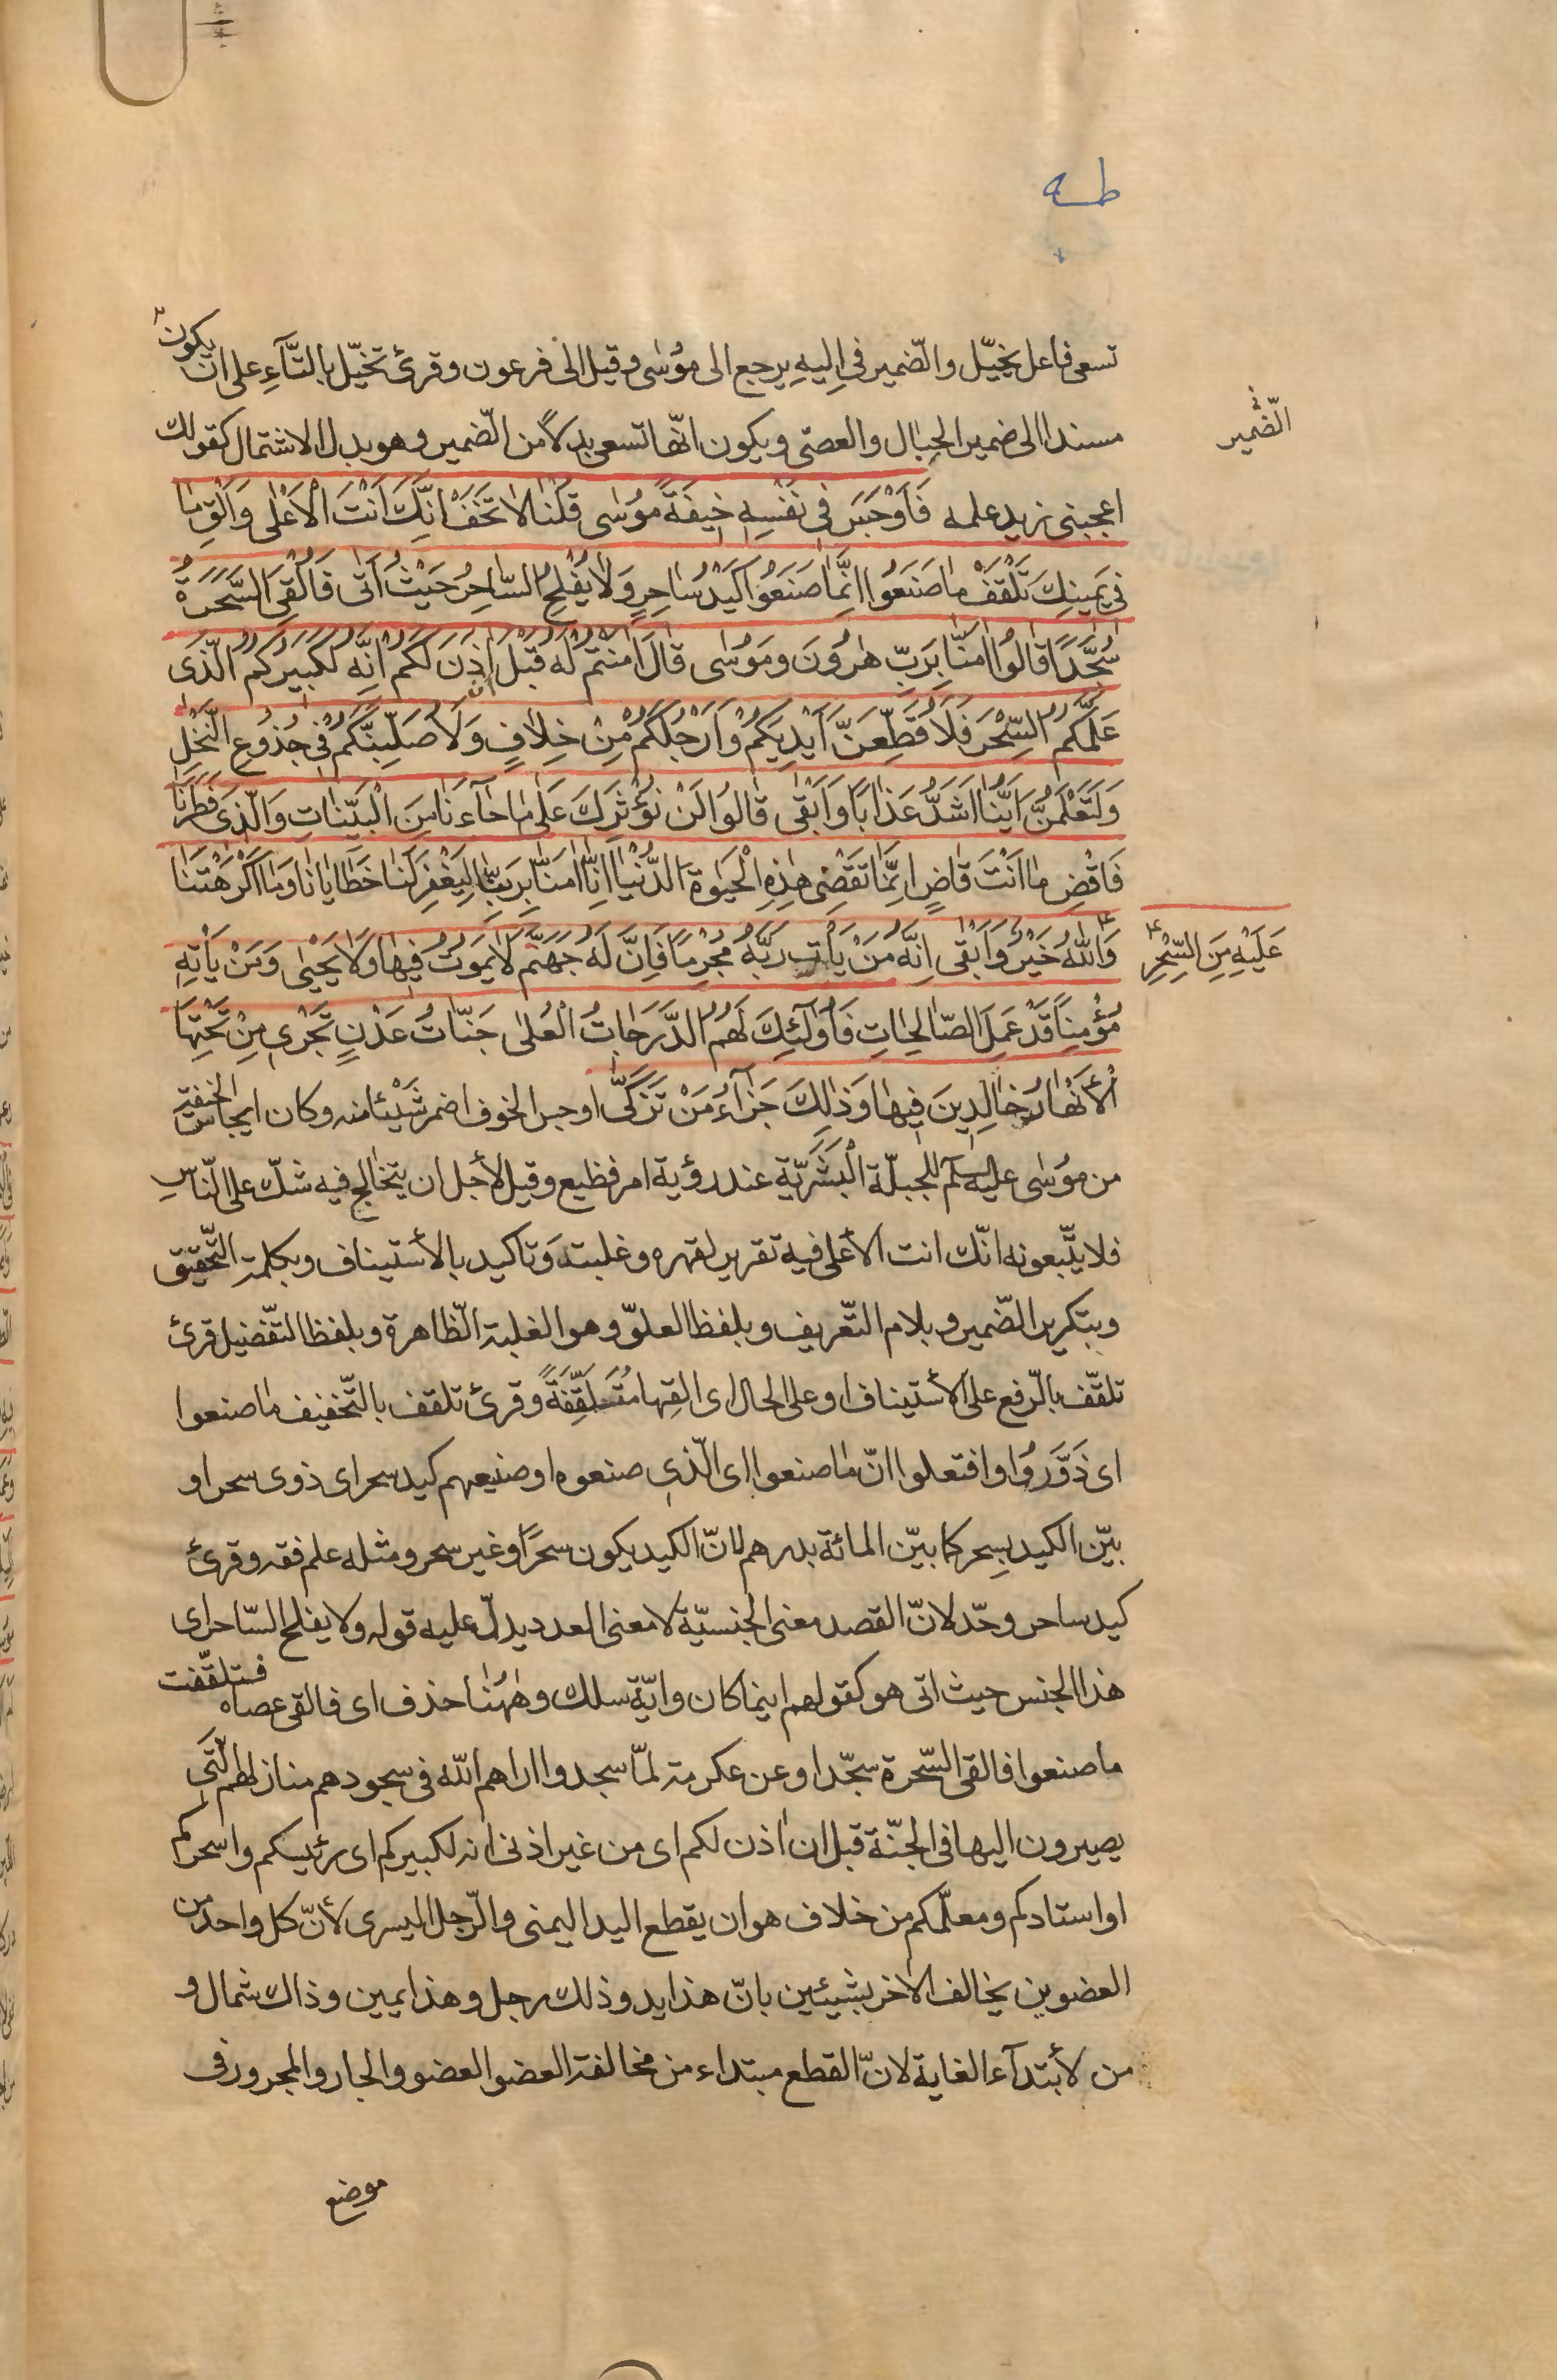 طه
تسعى فاعل يخيّل والضّمير فى اليهِ يرجع الى مؤسٰى وقيل الى فرعون وقرئ تخيّل بالتّآءِ على ان يكون
مسندا الى ضمير الحبال والعصىّ ويكون انّها تسعى بدلًا من الضّمير وهو بدل الاشتمال كقولك
الضّمير
اعجبنى زيد علمه فَاَوْجَسَ فِى نَفْسِهِ خِيفَةً مُوسٰى قُلْنٰا لاٰ تَخَفْ اِنَّكَ اَنْتَ الْاَعْلٰى وَاَلْقِ مٰا
فِى يَمِينِكَ تَلْقَفْ مٰا صَنَعُوا اِنَّمٰا صَنَعُوا كَيْدُ سٰاحِرٍ وَلاٰ يُفْلِحُ السّٰاحِرُ حَيْثُ اَتٰى فَاُلْقِىَ السَّحَرَةُ
سُجَّدًا قٰالُوا اٰمَنّٰا بِرَبِّ هٰرُونَ وَمُوسٰى قٰالَ اٰمَنْتُمْ لَهُ قَبْلَ اَنْ اٰذَنَ لَكُمْ اِنَّهُ لَكَبِيرُكُمُ الَّذِى
عَلَّمَكُمُ السِّحْرَ فَلَاُقَطِّعَنَّ اَيْدِيَكُمْ وَاَرْجُلَكُمْ مِنْ خِلاٰفٍ وَلَاُصَلِّبَنَّكُمْ فِى جُذُوعِ النَّخْلِ
وَلَتَعْلَمُنَّ اَيُّنٰا اَشَدُّ عَذٰابًا وَاَبْقٰى قٰالُوا لَنْ نُؤْثِرَكَ عَلٰى مٰا جٰآءَنٰا مِنَ الْبَيِّنٰاتِ وَالَّذِى فَطَرَنٰا
فَاقْضِ مٰا اَنْتَ قٰاضٍ اِنَّمٰا تَقْضِى هٰذِهِ الْحَيٰوةَ الدُّنْيٰا اِنّٰا اٰمَنّٰا بِرَبِّنٰا لِيَغْفِرَ لَنٰا خَطٰايٰانٰا وَمٰا اَكْرَهْتَنٰا
عَلَيْهِ مِنَ السِّحْرِ
وَاللّٰهُ خَيْرٌ وَاَبْقٰى اِنَّهُ مَنْ يَأْتِ رَبَّهُ مُجْرِمًا فَاِنَّ لَهُ جَهَنَّمَ لاٰ يَمُوتُ فِيهٰا وَلاٰ يَحْيٰى وَمَنْ يَأْتِهِ
مُؤْمِنًا قَدْ عَمِلَ الصّٰالِحٰاتِ فَاُولٰئِكَ لَهُمُ الدَّرَجٰاتُ الْعُلٰى جَنّٰاتُ عَدْنٍ تَجْرِى مِنْ تَحْتِهَا
الْأَنْهٰارُ خٰالِدِينَ فِيهٰا وَذٰلِكَ جَزٰآءُ مَنْ تَزَكّٰى اوجس الخوف اضمر شَيْئا منه وكان ايجاس الخيفة
من مؤسٰى عليه السلم للجبلّة الْبَشَرِيّة عند رؤية امر فظيع وقيل لأجل ان يتخالج فيه شكّ على النّاس
فلا يتّبعونه انّك انت الأعلى فيه تقرير لقهره وغلبته وتاكيد بالأستيناف وبكلمة التّحقيق
وبتكرير الضّمير وبلام التّعريف وبلفظ العلوّ وهو الغلبة الظّاهرة وبلفظ التّفضيل قرئ
تلقّف بالرّفع على الأستيناف او على الحال اى القِها مُتَلَقِّفَةً وقرئ تلقف بالتّخفيف مٰا صنعوا
اى ذَوَّرُوا وافتعلوا انّ مٰا صنعوا اى الّذى صنعوه او صنيعهم كيد سحر اى ذوى سحر او
بيّن الكيد بِسِحر كما بيّن المائة بدرهم لانّ الكيد يكون سحرًا وغير سحر ومثله علم فقه وقرئ
كيد ساحر وحّد لانّ القصد معنى الجنسيّة لا معنى العدد يدلّ عليه قوله ولا يفلح السّاحر اى
هذا الجنس حيث اتى هو كقولهم اينما كان وايّة سلك وهٰهُنٰا حذف اى فالقى عصاه فتلقّفت
ما صنعوا فالقى السّحرة سجّدا وعن عكرمة لمّا سجدوا اراهم اللّه فى سجودهم منازلهم الّتى
يصيرون اليها فى الجنّة قبل ان اٰذن لكم اى من غير اذنى انه لكبيركم اى رئيسكم واسحركم
او استادكم ومعلّمكم من خلاف هو ان يقطع اليد اليمنى والرّجل اليسرى لأنّ كل واحد من
العضوين يخالف الاٰخر بشيئين بانّ هذا يد وذلك رجل وهذا يمين وذاك شمال و
من لأبتدآء الغاية لانّ القطع مبتداء من مخالفة العضو العضو والجار والمجرور فى
موضع